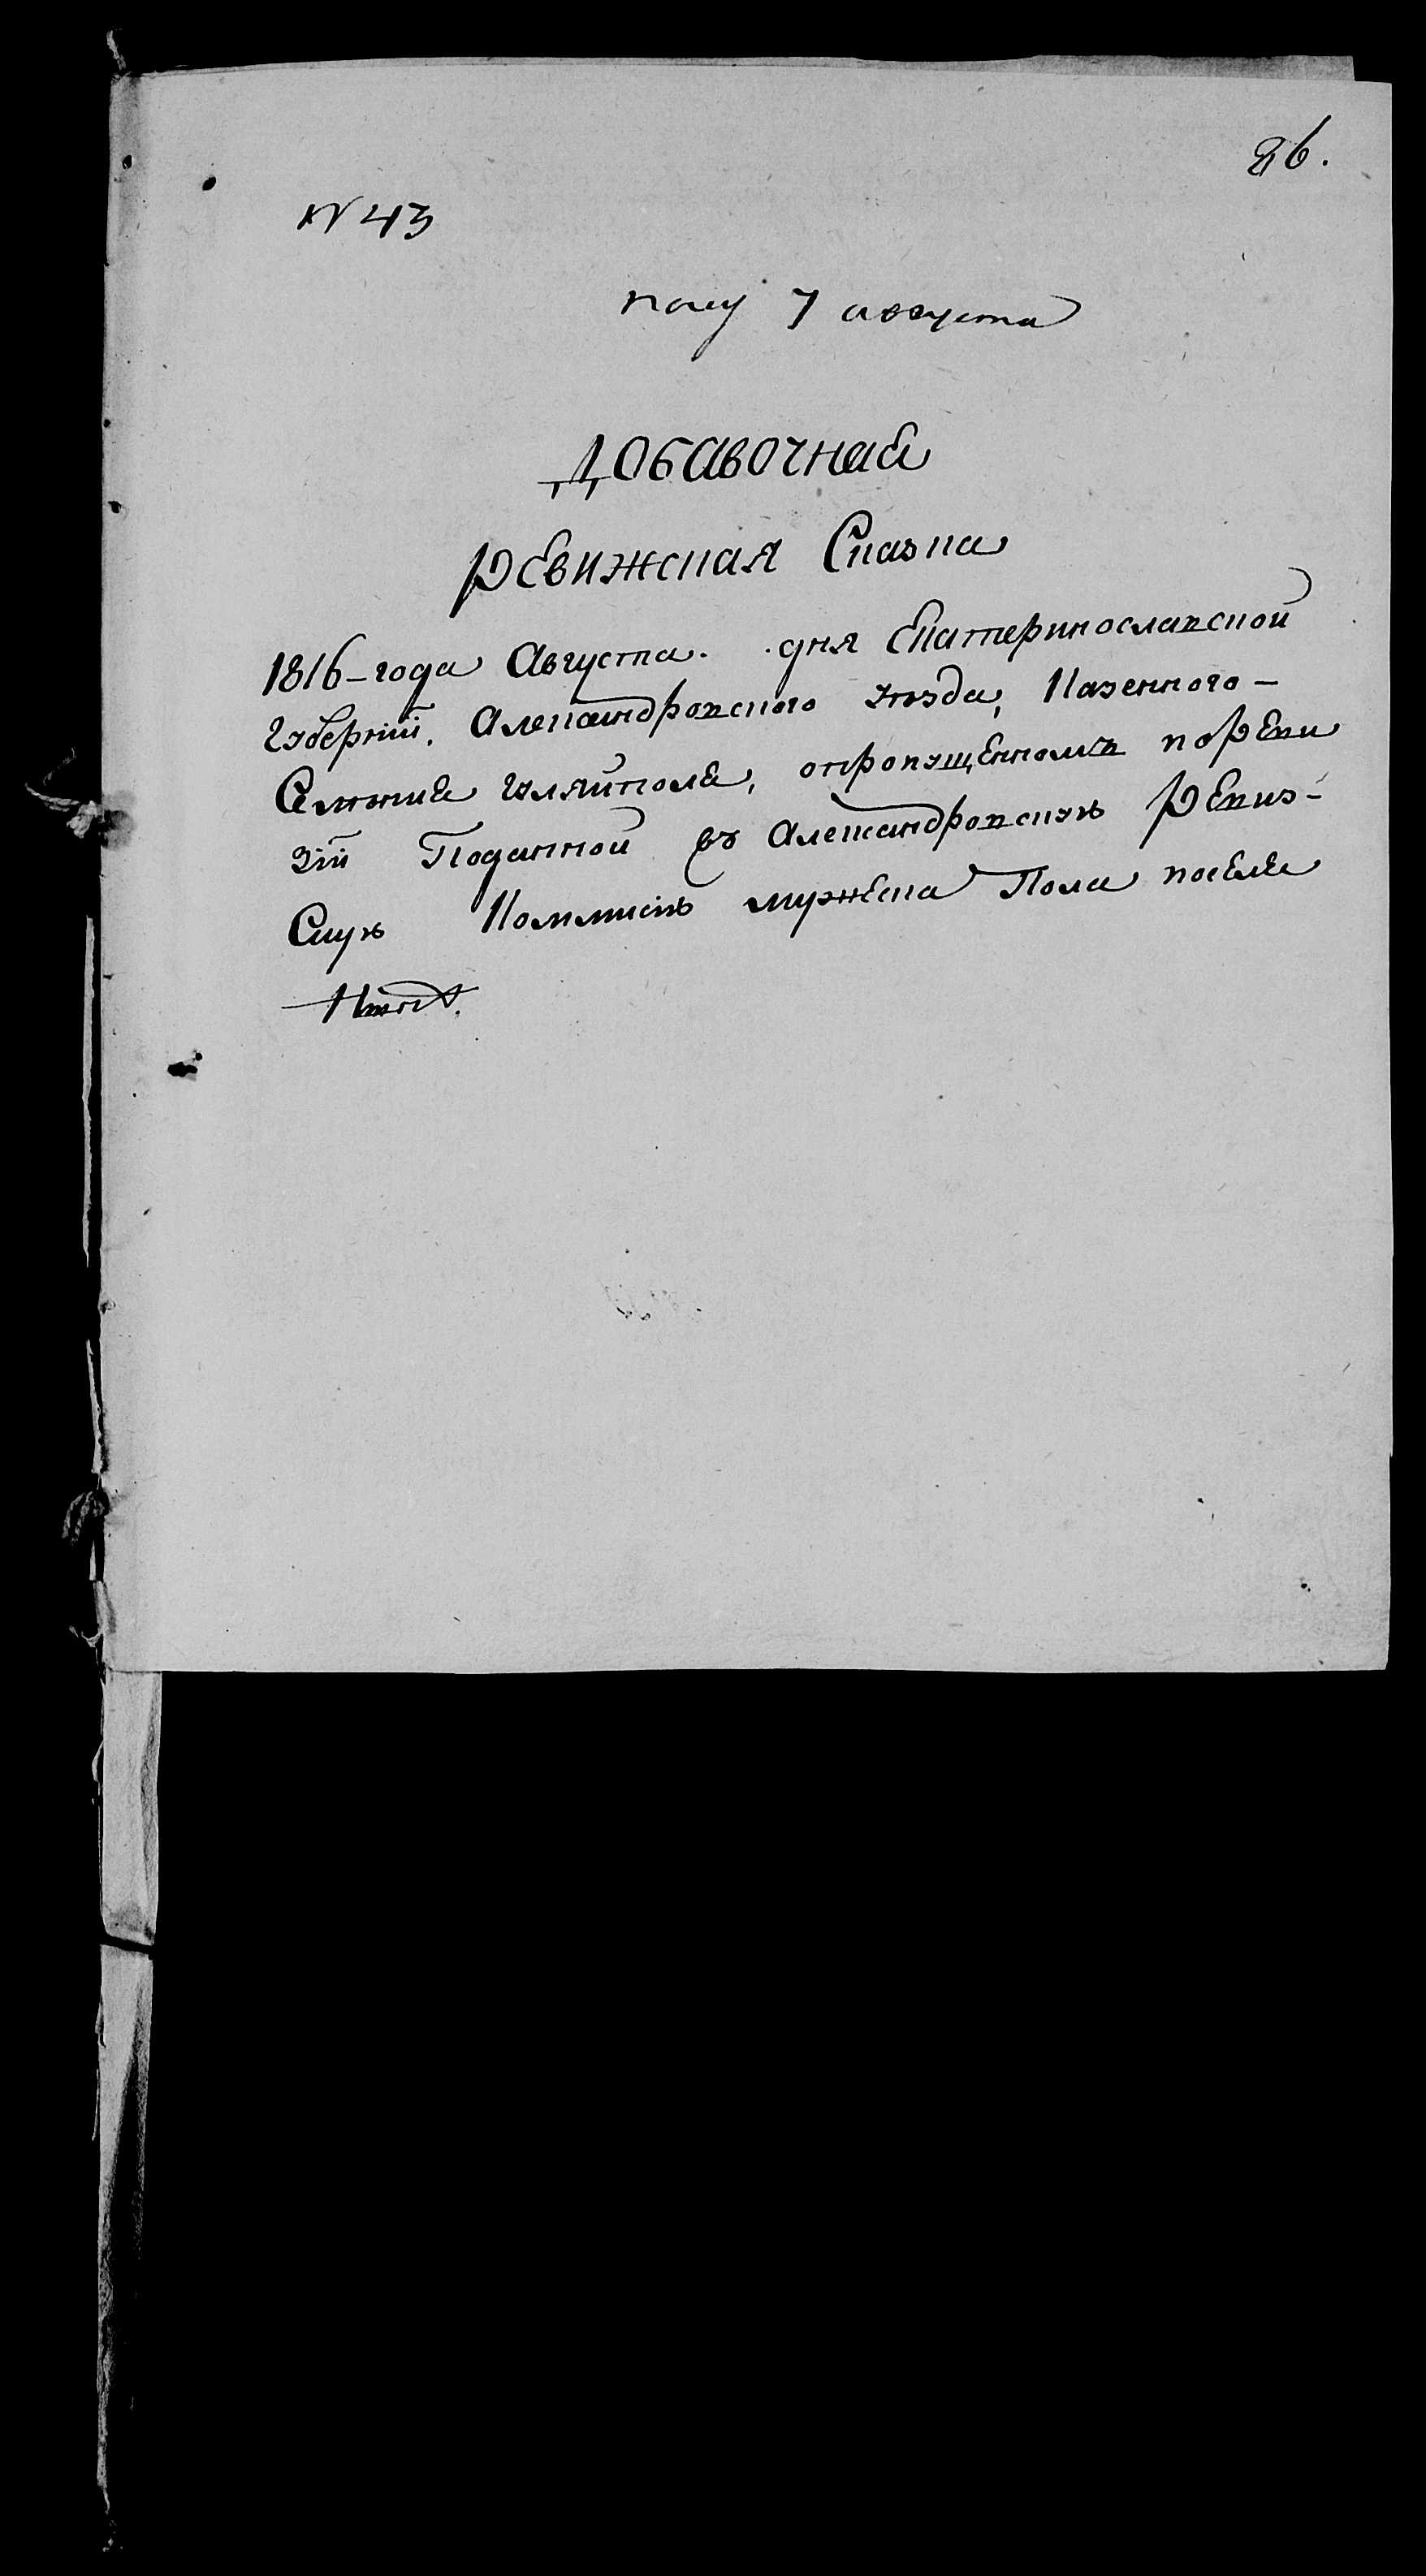 86.
N 43
полу 7 августа
Добавочная
Ревижская Сказка
1816-года Августа. дня Екатеринославской
Губернiй. Александровского уезда, Казенного-
Селения Гуляйполя, опропущенномъ поРеви
зiй Поданной въ Александровскую Ревиз-
Скую Коммисiю мужеска Пола после